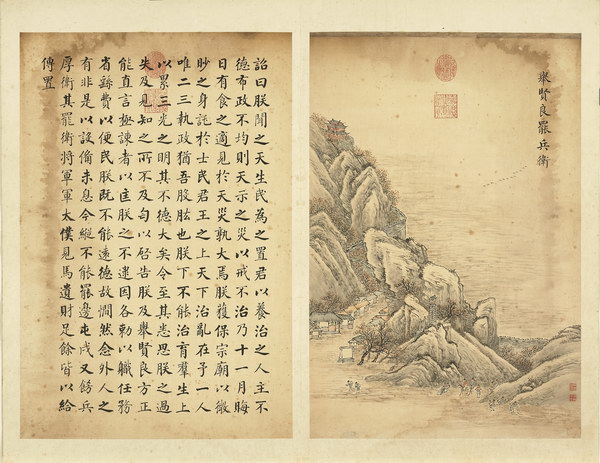 舉賢良罷兵衛
詔曰朕聞之天生民為之置君以養治之人主不
德布政不均則天示之災以戒不治乃十一月晦
日有食之適見於天災孰大焉朕獲保宗廟以微
眇之身託於士民君王之上天下治亂在予一人
唯二三執政猶吾股肱也朕下不能治育羣生上
以累三光之明其不德大矣令至其悉思朕之過
失及見知之所不及匄以啟告朕及舉賢良方正
能直言極諫者以匡朕之不逮因各勅以職任務
省繇費以便民朕既不能遠德故憪然念外人之
有非是以設備未息今縱不能罷邊屯戍又飭兵
厚衛其罷衛將軍軍太僕見馬遺財足餘皆以給
傳置